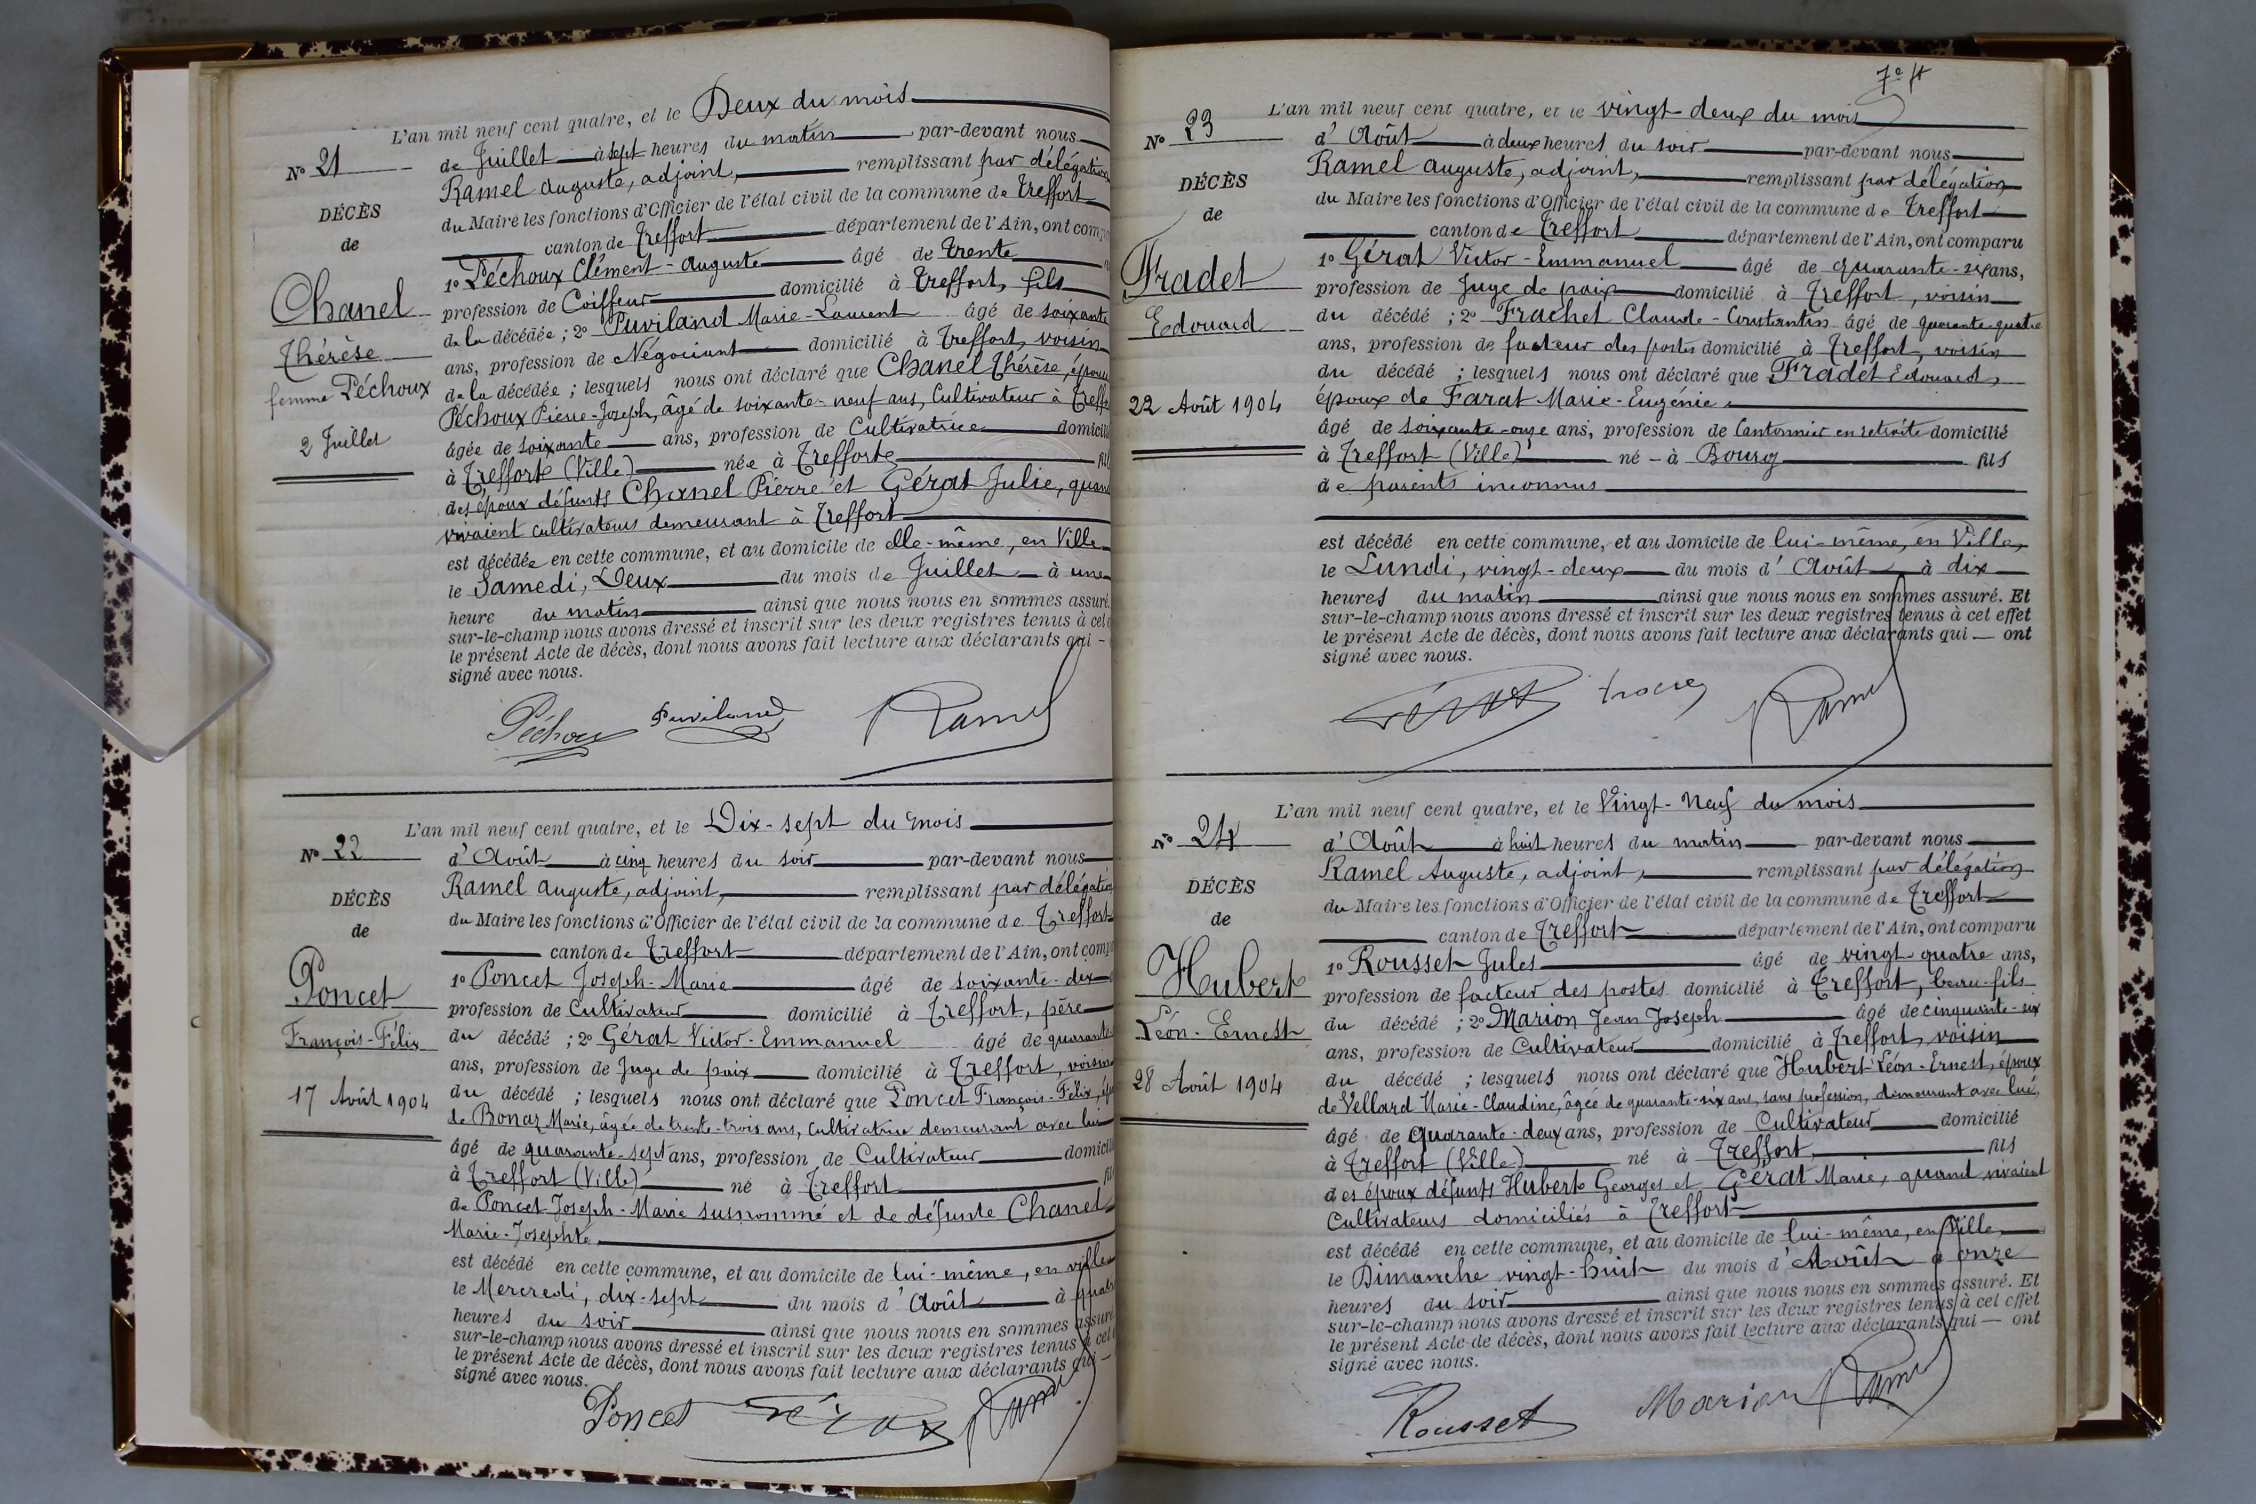 L'an mil neuf cent quatre, et le Deux du mois
N° 21
de Juillet à sept heures du matin par-devant nous
Ramel Auguste, adjoint, remplissant par délégation
DÉCÈS
du Maire les fonctions d'Officier de l'état civil de la commune de Treffort
de
canton de Treffort département de l'Ain, ont comp
1° Péchoux Clément-Auguste âgé de trente
Chanel
profession de Coiffeur domicilié à Treffort, fils
de la décédée ; 2° Puviland Marie-Laurent âgé de soixante
Thérèse
ans, profession de Négociant domicilié à Treffort, voisin
femme Péchoux
de la décédée ; lesquels nous ont déclaré que Chanel Thérèse, épouse
Péchoux Pierre-Joseph, âgé de soixante-neuf ans, Cultivateur à Treffo
2 Juillet
âgée de soixante ans, profession de Cultivatrice domicili
à Treffort (Ville) née à Treffort fil
des époux défunts Chanel Pierre et Gérat Julie, quand
vivaient cultivateurs demeurant à Treffort
est décédée en cette commune, et au domicile de elle-même, en Ville
le Samedi, Deux du mois de Juillet à une
heure du matin ainsi que nous nous en sommes assuré.
sur-le-champ nous avons dressé et inscrit sur les deux registres tenus à cet e
le présent Acte de décès, dont nous avons fait lecture aux déclarants qui -
signé avec nous.
Péchoux Puviland Ramel
L'an mil neuf cent quatre, et le Dix-sept du mois
N° 22
d'Août à cinq heures du soir par-devant nous
Ramel Auguste, adjoint, remplissant par délégation
DÉCÈS
du Maire les fonctions d'Officier de l'état civil de la commune de Treffort
de
canton de Treffort département de l'Ain, ont comp
1° Poncet Joseph-Marie âgé de soixante-dix
Poncet
profession de Cultivateur domicilié à Treffort, père
François-Félix
du décédé ; 2° Gérat Victor-Emmanuel âgé de quarante
ans, profession de Juge de paix domicilié à Treffort, voisin
17 Août 1904
du décédé ; lesquels nous ont déclaré que Poncet François-Félix, ép
de Bonaz Marie, âgée de trente-trois ans, cultivatrice demeurant avec lui
âgé de quarante-sept ans, profession de Cultivateur domicili
à Treffort (Ville) né à Treffort fil
de Poncet Joseph-Marie susnommé et de défunte Chanel
Marie-Josephte
est décédé en cette commune, et au domicile de lui-même, en ville
le Mercredi, dix-sept du mois d'Août à quatr
heures du soir ainsi que nous nous en sommes assuré
sur-le-champ nous avons dressé et inscrit sur les deux registres tenus à cet e
le présent Acte de décès, dont nous avons fait lecture aux déclarants qui -
signé avec nous.
Poncet Gérat Ramel
L'an mil neuf cent quatre, et le vingt-deux du mois
N° 23
d'Août à deux heures du soir par-devant nous
Ramel Auguste, adjoint, remplissant par délégation
DÉCÈS
du Maire les fonctions d'Officier de l'état civil de la commune de Treffort
de
canton de Treffort département de l'Ain, ont comparu
1° Gérat Victor-Emmanuel âgé de quarante-six ans,
Fradet
profession de Juge de paix domicilié à Treffort, voisin
Edouard
du décédé ; 2° Frachet Claude-Constantin âgé de quarante-quatre
ans, profession de facteur des postes domicilié à Treffort, voisin
du décédé ; lesquels nous ont déclaré que Fradet Edouard,
22 Août 1904
époux de Farat Marie-Eugénie,
âgé de soixante-onze ans, profession de Cantonnier en retraite domicilié
à Treffort (Ville) né à Bourg fils
de parents inconnus
est décédé en cette commune, et au domicile de lui-même, en Ville,
le Lundi, vingt-deux du mois d'Août à dix
heures du matin ainsi que nous nous en sommes assuré. Et
sur-le-champ nous avons dressé et inscrit sur les deux registres tenus à cet effet
le présent Acte de décès, dont nous avons fait lecture aux déclarants qui — ont
signé avec nous.
Gérat Ramel
L'an mil neuf cent quatre, et le Vingt-Neuf du mois
N° 24
d'Août à huit heures du matin par-devant nous
Ramel Auguste, adjoint, remplissant par délégation
DÉCÈS
du Maire les fonctions d'Officier de l'état civil de la commune de Treffort
de
canton de Treffort département de l'Ain, ont comparu
1° Rousset Jules âgé de vingt-quatre ans,
Hubert
profession de facteur des postes domicilié à Treffort, beau-fils
Léon-Ernest
du décédé ; 2° Marion Jean Joseph âgé de cinquante-six
ans, profession de Cultivateur domicilié à Treffort, voisin
28 Août 1904
du décédé ; lesquels nous ont déclaré que Hubert Léon-Ernest, époux
de Vellard Marie-Claudine, âgée de quarante-six ans, sans profession, demeurant avec lui,
âgé de quarante-deux ans, profession de Cultivateur domicilié
à Treffort (Ville) né à Treffort fils
des époux défunts Hubert Georges et Gérat Marie, quand vivaient
Cultivateurs domiciliés à Treffort
est décédé en cette commune, et au domicile de lui-même, en Ville,
le Dimanche vingt-huit du mois d'Août à onze
heures du soir ainsi que nous nous en sommes assuré. Et
sur-le-champ nous avons dressé et inscrit sur les deux registres tenus à cet effet
le présent Acte de décès, dont nous avons fait lecture aux déclarants qui — ont
signé avec nous.
Rousset Marion Ramel